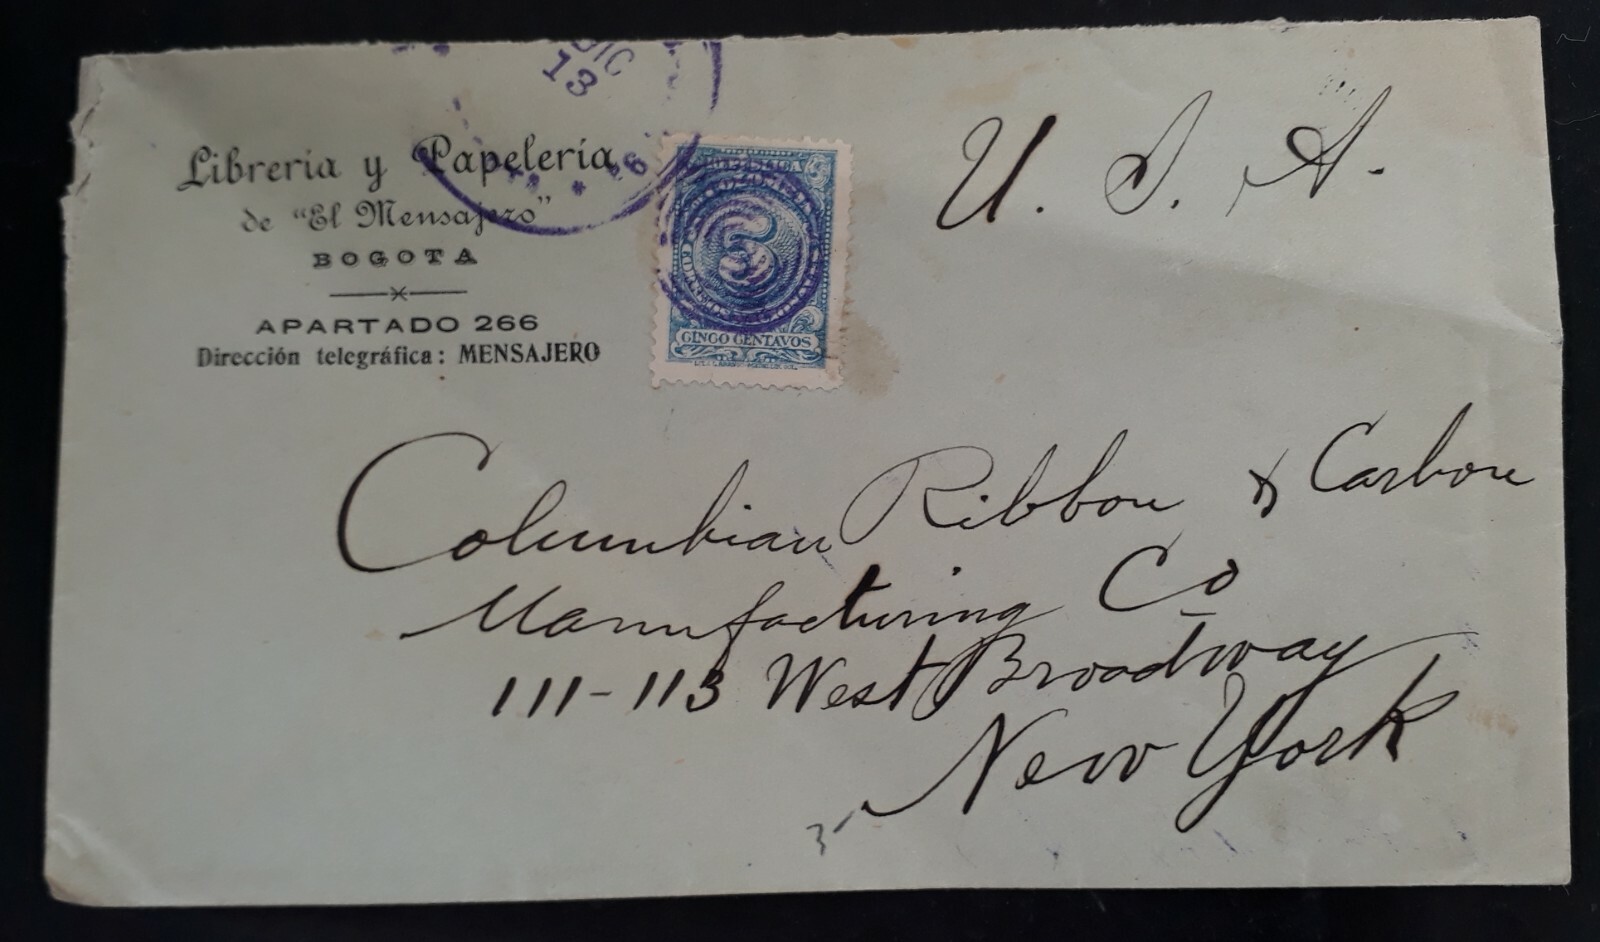 DIC
13
Librería y Papelería
de "El Mensajero"
BOGOTA
APARTADO 266
Dirección telegráfica: MENSAJERO
5
CINCO CENTAVOS
U. S. A.
Columbian Ribbon & Carbon
Manufacturing Co
111-113 West Broadway
New York